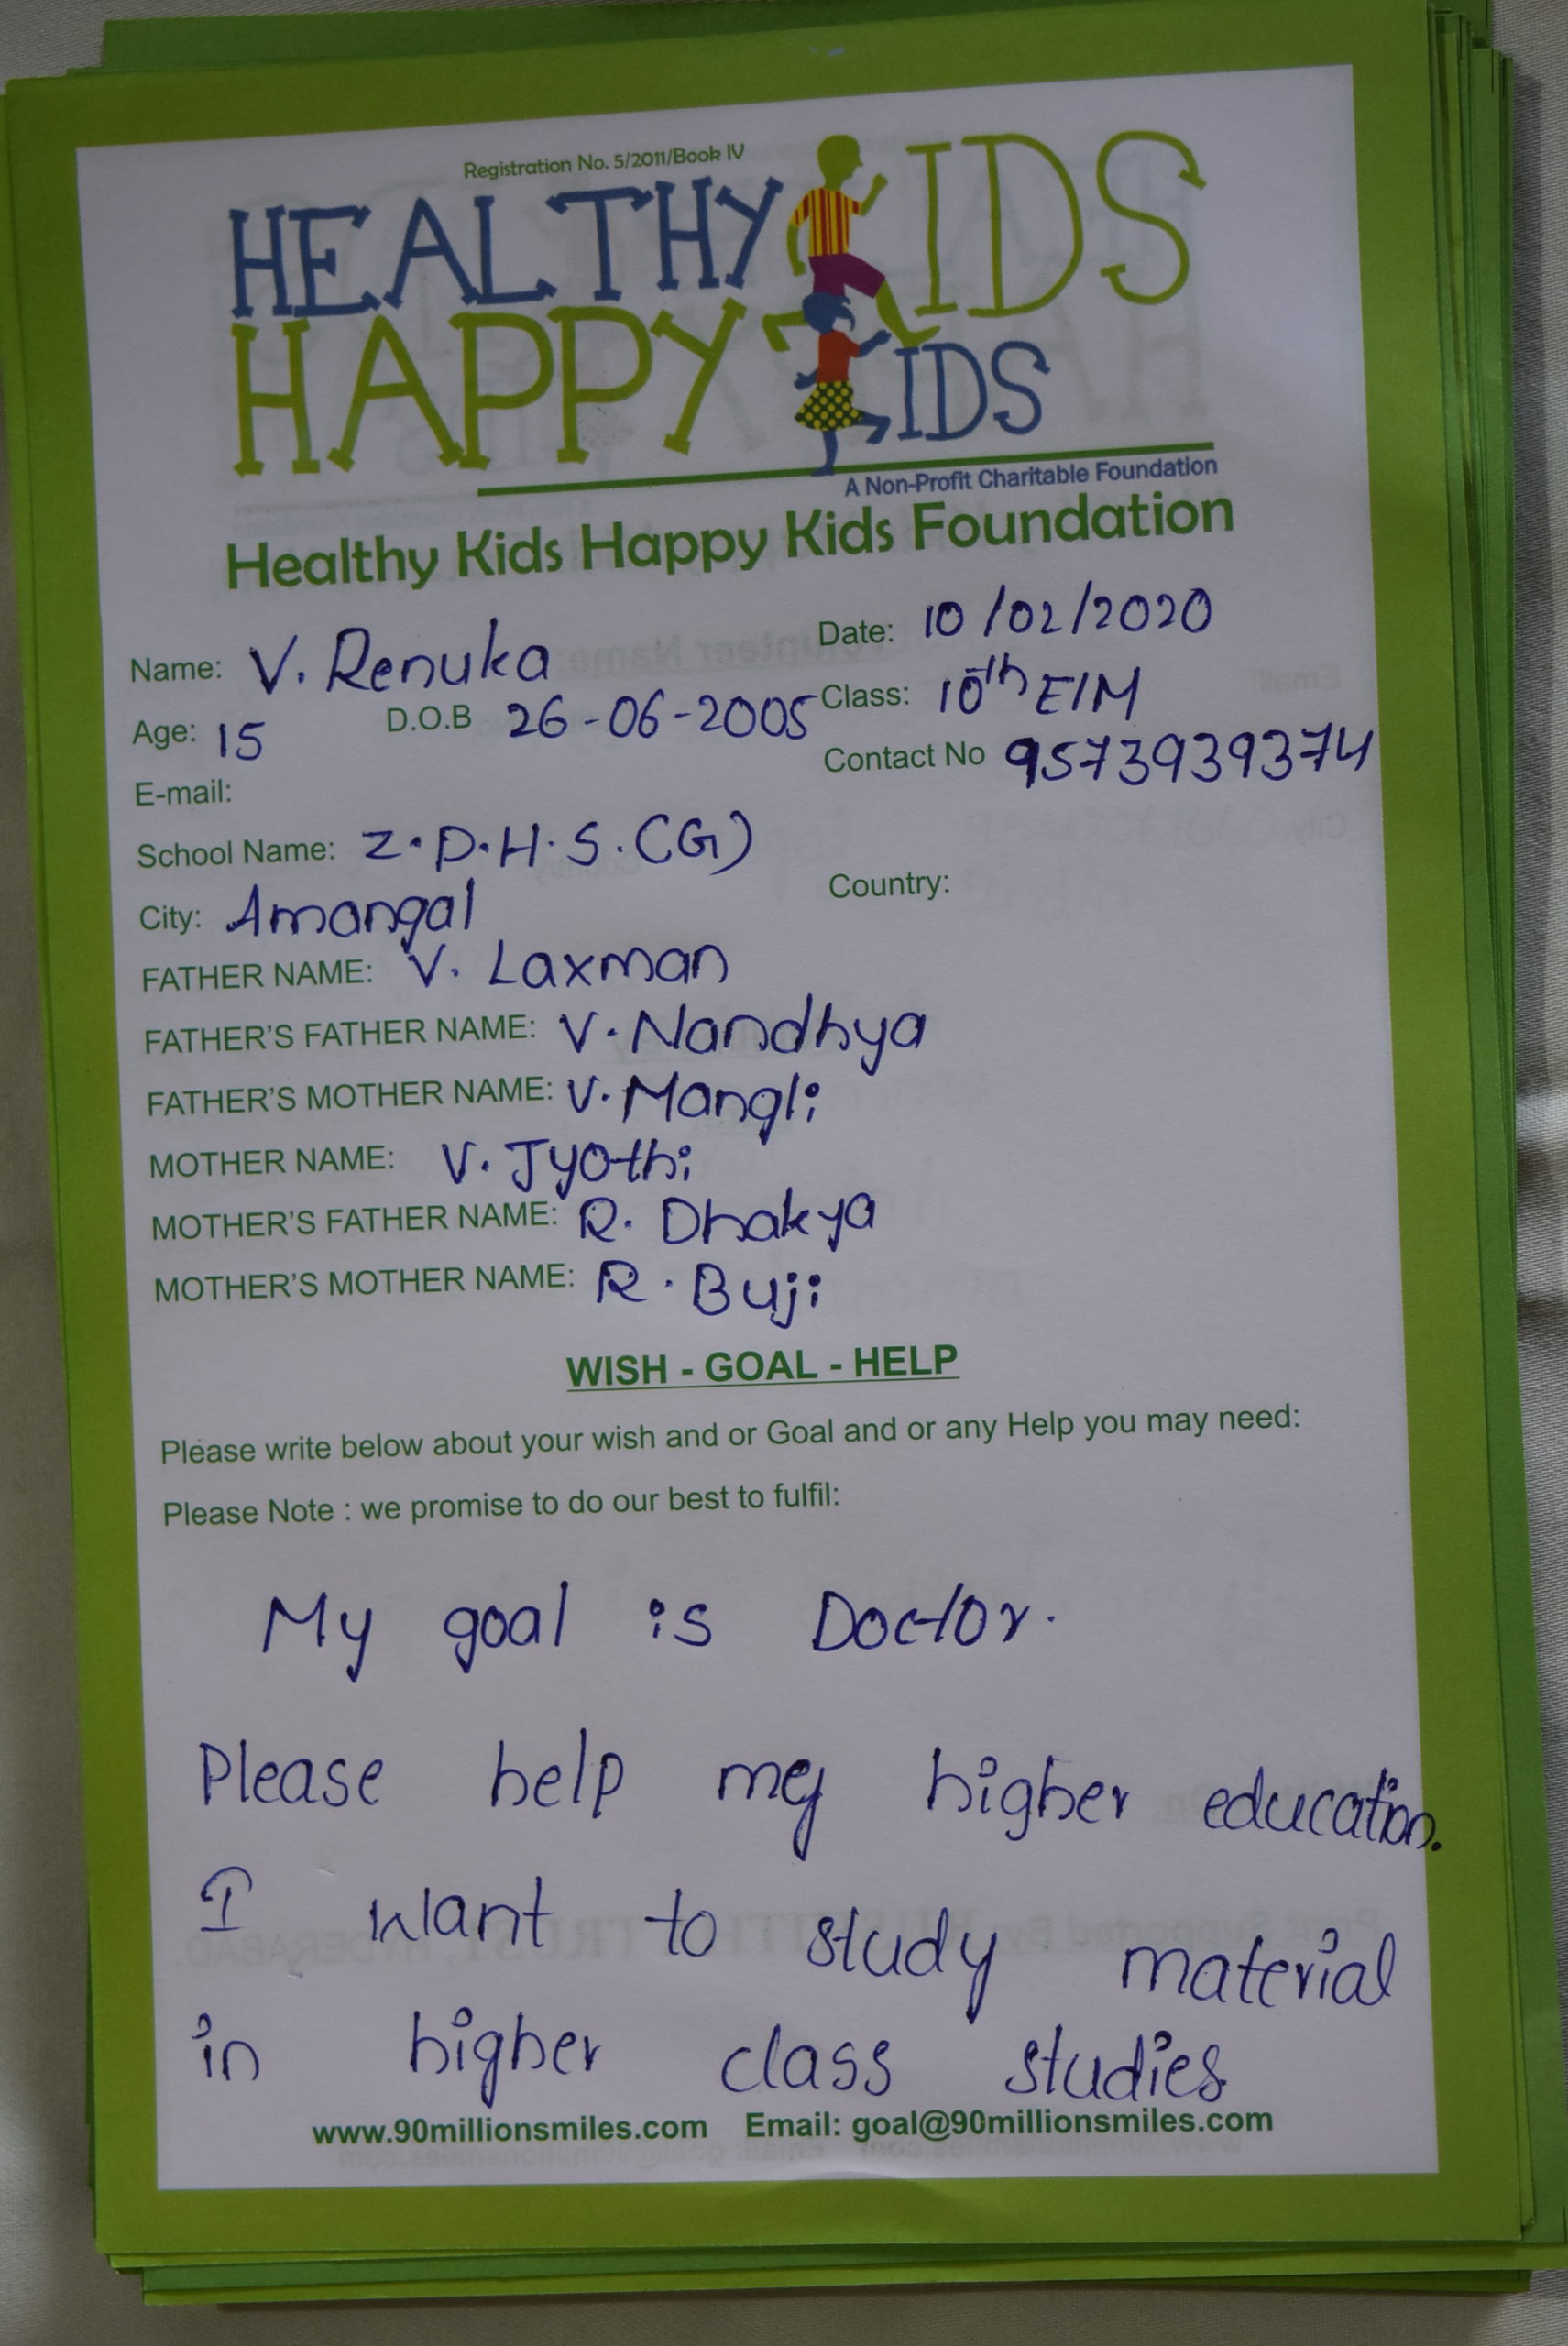 Registration No. 5/2011/Book IV
HEALTHY KIDS
HAPPY KIDS
A Non-Profit Charitable Foundation
Healthy Kids Happy Kids Foundation
Name: V. Renuka Date: 10/02/2020
Age: 15 D.O.B 26-06-2005 Class: 10th E/M
E-mail: Contact No 9573939374
School Name: Z.P.H.S.(G)
City: Amangal Country:
FATHER NAME: V. Laxman
FATHER'S FATHER NAME: V. Nandhya
FATHER'S MOTHER NAME: V. Mangli
MOTHER NAME: V. Jyothi
MOTHER'S FATHER NAME: R. Dhakya
MOTHER'S MOTHER NAME: R. Buji
WISH - GOAL - HELP
Please write below about your wish and or Goal and or any Help you may need:
Please Note : we promise to do our best to fulfil:
My goal is Doctor.
Please help my higher education.
I want to study material
in higher class studies
www.90millionsmiles.com Email: goal@90millionsmiles.com